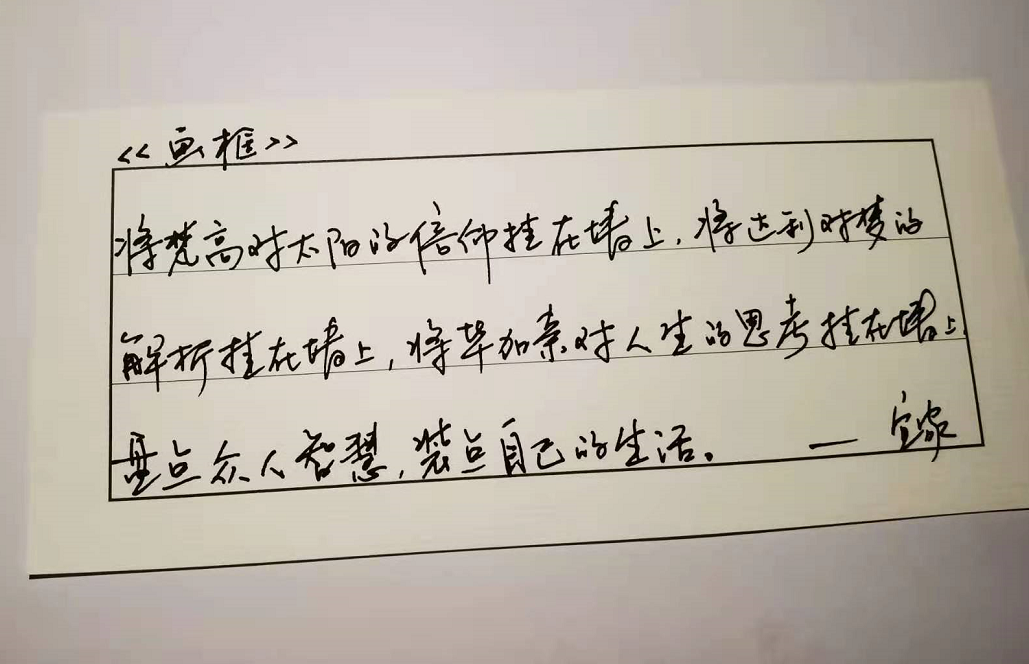 <<画框>>
将梵高对太阳的信仰挂在墙上，将达利对梦的
解析挂在墙上，将毕加索对人生的思考挂在墙上，
盘点众人智慧，装点自己的生活。 — 宜家